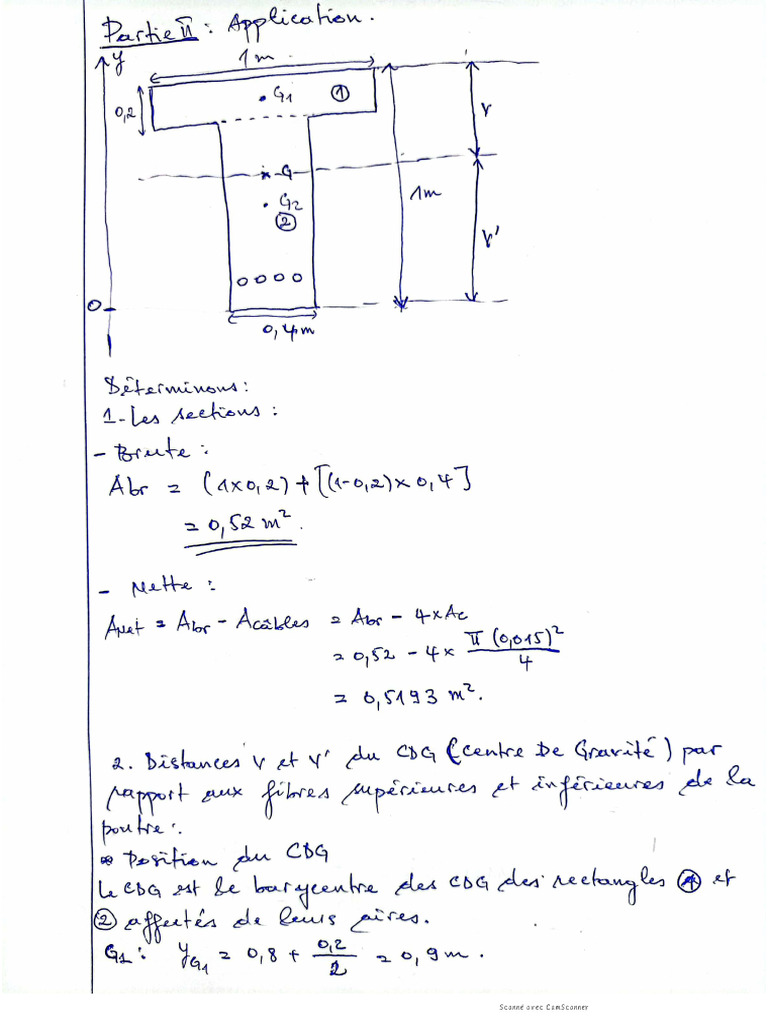 Partie II : Application.
y
1m
G1
1
0,2
v
G
G2
2
1m
v'
0
0,4m
Déterminons :
1 - Les sections :
- Brute :
Abr = (1x0,2) + [(1-0,2)x 0,4]
= 0,52 m²
- Nette :
Anet = Abr - Acâbles = Abr - 4xAc
= 0,52 - 4x π(0,015)²/4
= 0,5193 m².
2. Distances v et v' du CDG (centre De Gravité) par
rapport aux fibres supérieures et inférieures de la
poutre :
* Position du CDG
Le CDG est le barycentre des CDG des rectangles 1 et
2 affectés de leurs aires.
G1 : yG1 = 0,8 + 0,2/2 = 0,9m.
Scanné avec CamScanner